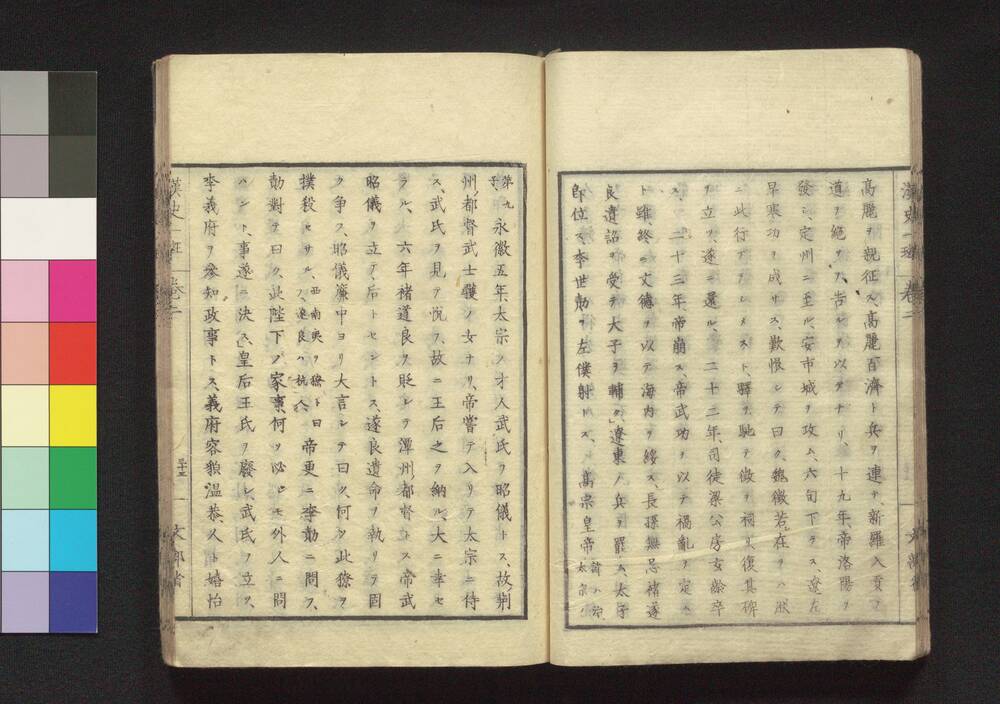 漢史一班 卷二
高麗ヲ親征ス、高麗百濟ト兵ヲ連子、新羅入貢ノ
道ヲ絶ツヲ、告ルヲ以テナリ、十九年、帝洛陽ヲ
發シ、定州ニ至ル、安市城ヲ攻ム、六旬下ラス、遼左
早寒功ヲ成サス、歎恨シテ曰ク、魏徵若在ラハ、朕
ニ此行アラシメスト、驛ヲ馳テ徵ヲ祠リ、復其碑
ヲ立ツ、遂ニ還ル、二十二年、司徒梁公房玄齡卒
ス、二十三年、帝崩ス、帝武功ヲ以テ禍亂ヲ定ム
ト雖、終ニ文德ヲ以テ海内ヲ綏ス、長孫無忌褚遂
良遺詔ヲ受テ太子ヲ輔ク、遼東ノ兵ヲ罷ム、太子
卽位ス、李世勣ヲ左僕射トス、高宗皇帝諱ハ治、太宗ノ
第九子永徽五年、太宗ノ才人武氏ヲ昭儀トス、故ノ荆
州ノ都督武士彠ノ女ナリ、帝嘗テ入リテ太宗ニ侍
ス、武氏ヲ見テ悅フ、故ニ王后之ヲ納ル、大ニ幸セ
ラル、六年褚遂良ヲ貶シテ潭州ノ都督トス、帝武
昭儀ヲ立テ、后トセントス、遂良遺命ヲ執リテ固
ク争フ、昭儀簾中ヨリ大言シテ曰ク、何ソ此獠ヲ
撲殺セサル、西南夷ヲ獠ト曰フ、遂良ハ杭人、帝更ニ李勣ニ問フ、
勣對テ曰ク、此陛下ノ家事、何ソ必シモ外人ニ問
ハント、事遂ニ决ス、皇后王氏ヲ廢シ、武氏ヲ立ツ、
李義府ヲ參知政事トス、義府容貌溫恭、人ト嬉怡
漢史一班 卷二 文部省